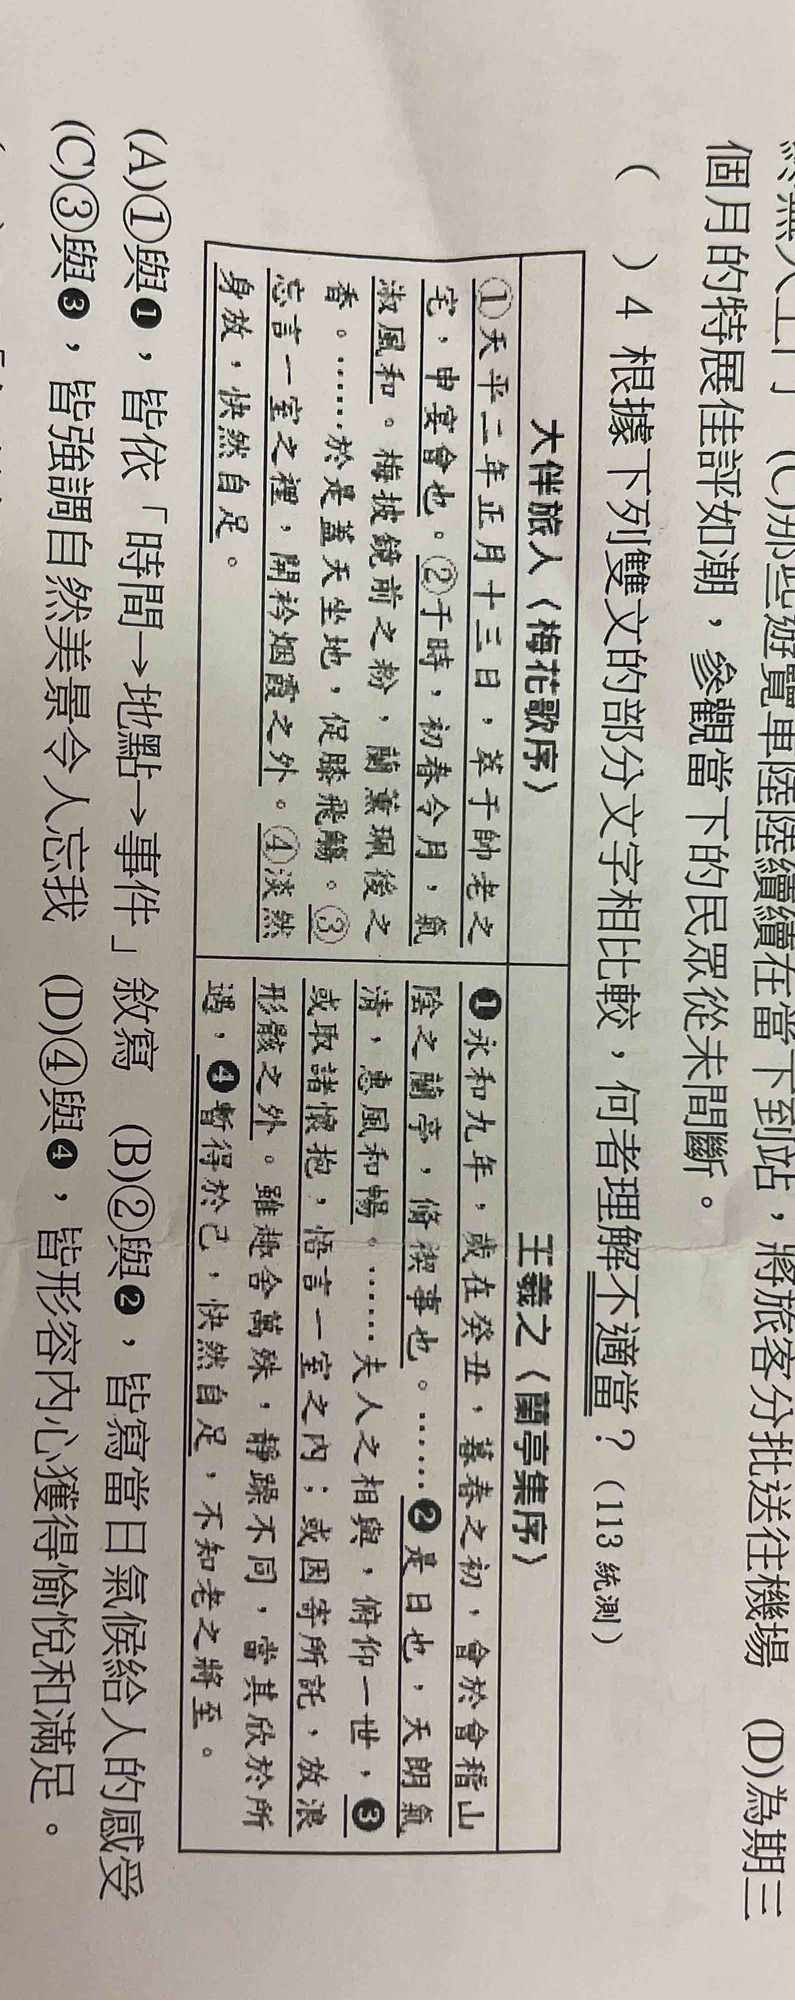 (C)那些遊覽車陸陸續續在當下到站，將旅客分批送往機場　(D)為期三
個月的特展佳評如潮，參觀當下的民眾從未間斷。
(　) 4 根據下列雙文的部分文字相比較，何者理解不適當？（113 統測）
大伴旅人〈梅花歌序〉
①天平二年正月十三日，萃于帥老之
宅，申宴會也。②于時，初春令月，氣
淑風和。梅披鏡前之粉，蘭薰珮後之
香。……於是蓋天坐地，促膝飛觴。③
忘言一室之裡，開衿烟霞之外。④淡然
身放，快然自足。
王羲之〈蘭亭集序〉
❶永和九年，歲在癸丑，暮春之初，會於會稽山
陰之蘭亭，脩禊事也。……❷是日也，天朗氣
清，惠風和暢。……夫人之相與，俯仰一世，❸
或取諸懷抱，悟言一室之內；或因寄所託，放浪
形骸之外。雖趣舍萬殊，靜躁不同，當其欣於所
遇，❹暫得於己，快然自足，不知老之將至。
(A)①與❶，皆依「時間→地點→事件」敘寫　(B)②與❷，皆寫當日氣候給人的感受
(C)③與❸，皆強調自然美景令人忘我　(D)④與❹，皆形容內心獲得愉悅和滿足。